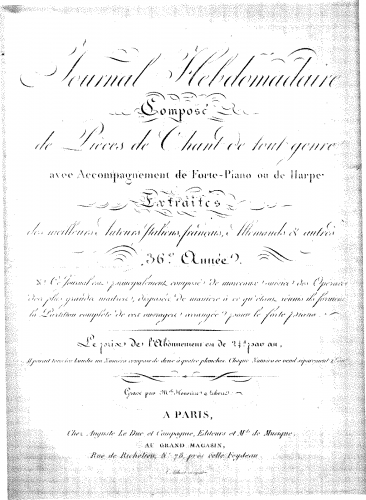 Journal Hebdomadaire
Composé
de Pièces de Chant de tout genre
avec Accompagnement de Forte-Piano ou de Harpe
Extraites
des meilleurs Auteurs Italiens, français, Allemands & autres
36e. Année.
Ce Journal est principalement composé de morceaux des Operas
des plus grands maitres, disposés de manière à ce qu'étant réunis ils forment
la Partition complète de ces ouvrages arrangée pour le forte piano
Le prix de l'Abonnement est de 24f. par an,
Il paroit tous les lundis un Numéro composé de deux à quatre planches. Chaque Numéro se vend séparement
Gravé par Mlle
A PARIS,
Chez Auguste Le Duc et Compagnie, Editeurs et Mds. de Musique,
AU GRAND MAGASIN,
Rue de Richelieu, No. 78, près celle Feydeau